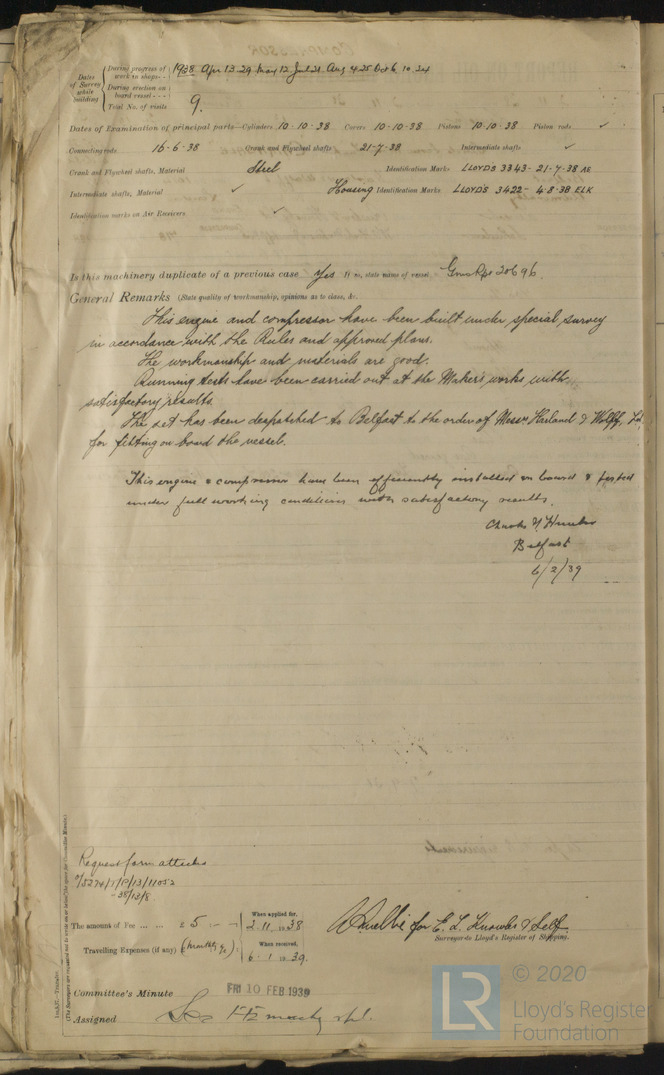 Dates of Survey while building
During progress of work in shops - - 1938 Apr 13. 29 May 12 Jul 21 Aug 4. 25 Oct 6. 10. 24
During erection on board vessel - - -
Total No. of visits 9.
Dates of Examination of principal parts—Cylinders 10-10-38 Covers 10-10-38 Pistons 10-10-38 Piston rods ✓
Connecting rods 16-6-38 Crank and Flywheel shafts 21-7-38 Intermediate shafts ✓
Crank and Flywheel shafts, Material Steel Identification Marks LLOYD'S 3343 - 21-7-38 AE
Intermediate shafts, Material ✓ Housing Identification Marks LLOYD'S 3422 - 4-8-38 ELK
Identification marks on Air Receivers ✓
Is this machinery duplicate of a previous case Yes If so, state name of vessel 20696
General Remarks (State quality of workmanship, opinions as to class, &c.
This engine and compressor have been built under special survey
in accordance with the Rules and approved plans.
The workmanship and materials are good.
Running tests have been carried out at the Makers works with
satisfactory results.
The set has been despatched to Belfast to the order of Messrs Harland & Wolff, Ltd
for fitting on board the vessel.
This engine & compressor have been efficiently installed on board & tested
under full working conditions with satisfactory results.
Belfast
6/2/39
Request form attached
The amount of Fee ... ... £ 5 : - : - When applied for, 2. 11. 1938
Travelling Expenses (if any) (Monthly a/c) : When received, 6. 1. 1939.
for E. L. Knowles & Self
Surveyor to Lloyd's Register of Shipping.
Committee's Minute FRI 10 FEB 1939
Assigned
(The Surveyors are requested not to write on or below the space for Committee's Minute.)
© 2020
LR
Lloyd's Register
Foundation